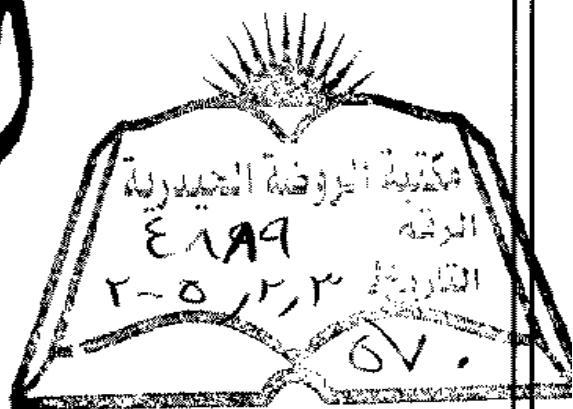 مكتبة الروضة الحيدرية
الرقم
التاريخ ٢,٣, ٥-٢
٥٧٠